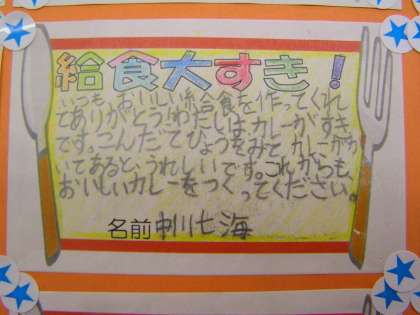 給食大すき!
いつも、おいしい給食を作ってくれ
てありがとう!わたしはカレーがすき
です。こんだてひょうをみて、カレーがか
いてあると、うれしいです。これからも、
おいしいカレーをつくってください。
名前 中川七海